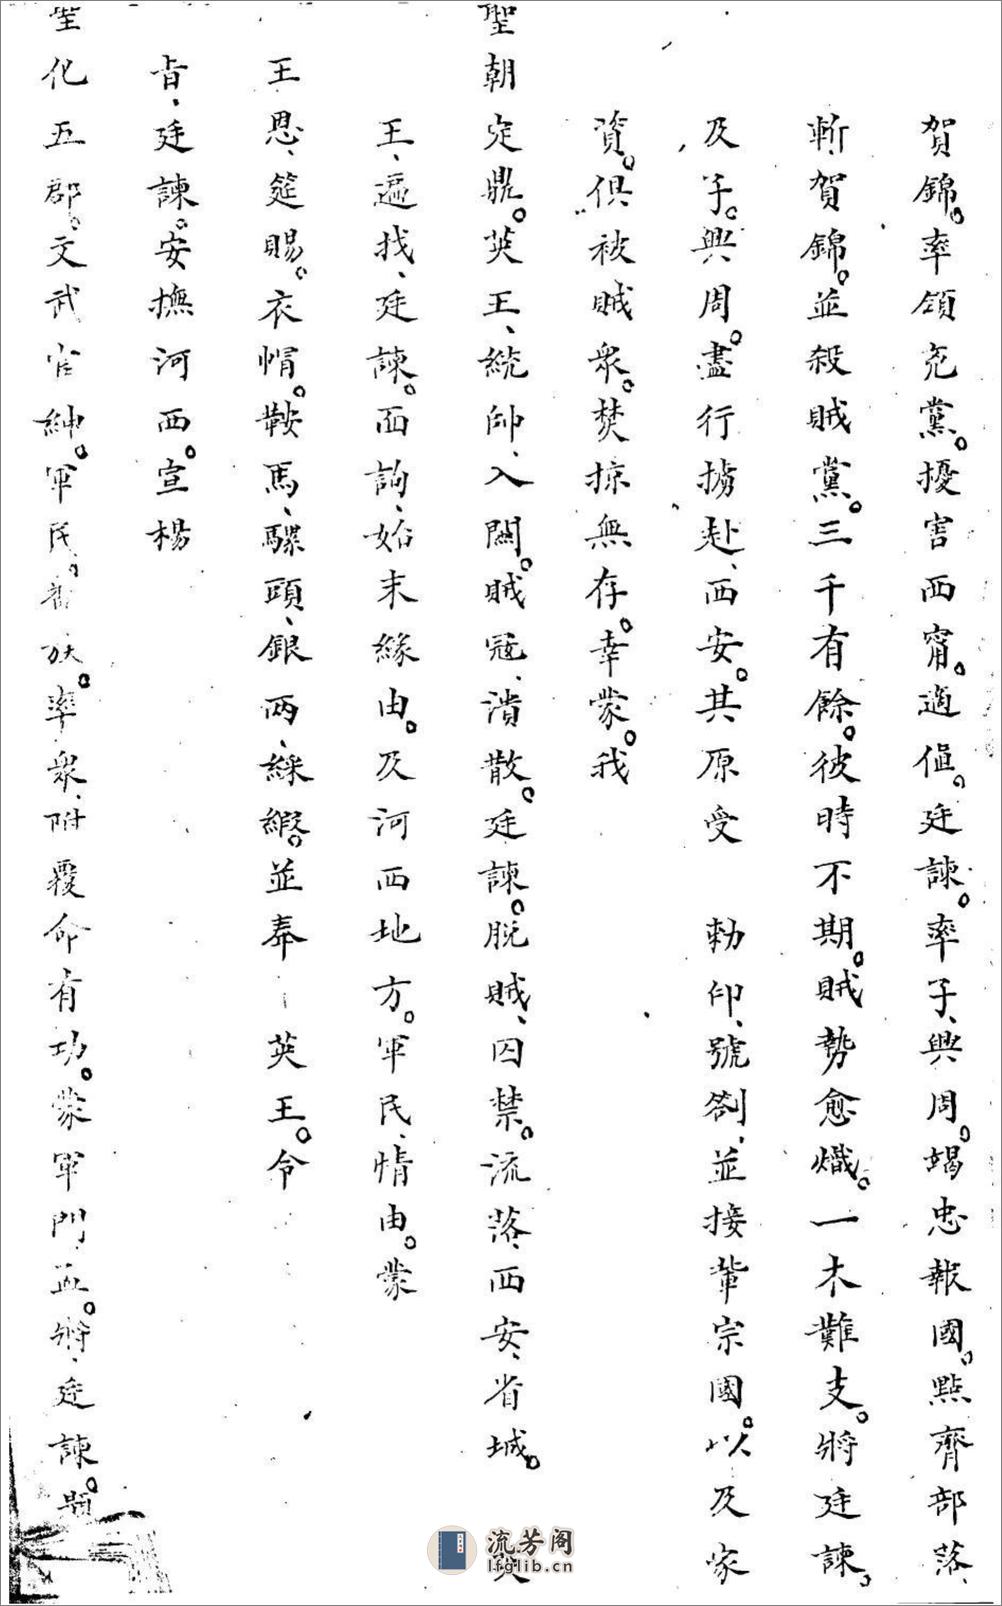 賀錦。率領兇黨。擾害西甯。適值。廷諫。率子、興周。竭忠報國。點齊部落、
斬賀錦。並殺賊黨。三千有餘。彼時不期。賊勢愈熾。一木難支。將廷諫。
及子。興周。盡行擄赴、西安。其原受　勅印、號劄、並接輩宗圖。以及家
資。俱被賊眾。焚掠無存。幸蒙。我
聖朝定鼎。英王、統帥、入關。賊寇、潰散。廷諫。脫賊、囚禁。流落、西安、省城。　英
王、遍找、廷諫。面詢、始末緣由。及河西地方。軍民、情由。蒙
王恩、筵賜。衣帽。鞍馬、騾頭、銀兩、綵緞。並奉　英王。令
旨、廷諫。安撫河西。宣揚
聖化五郡。文武官紳。軍民。番族。率眾、附覆命有功。蒙軍門孟。將、廷諫。題
流芳阁
lfglib.cn